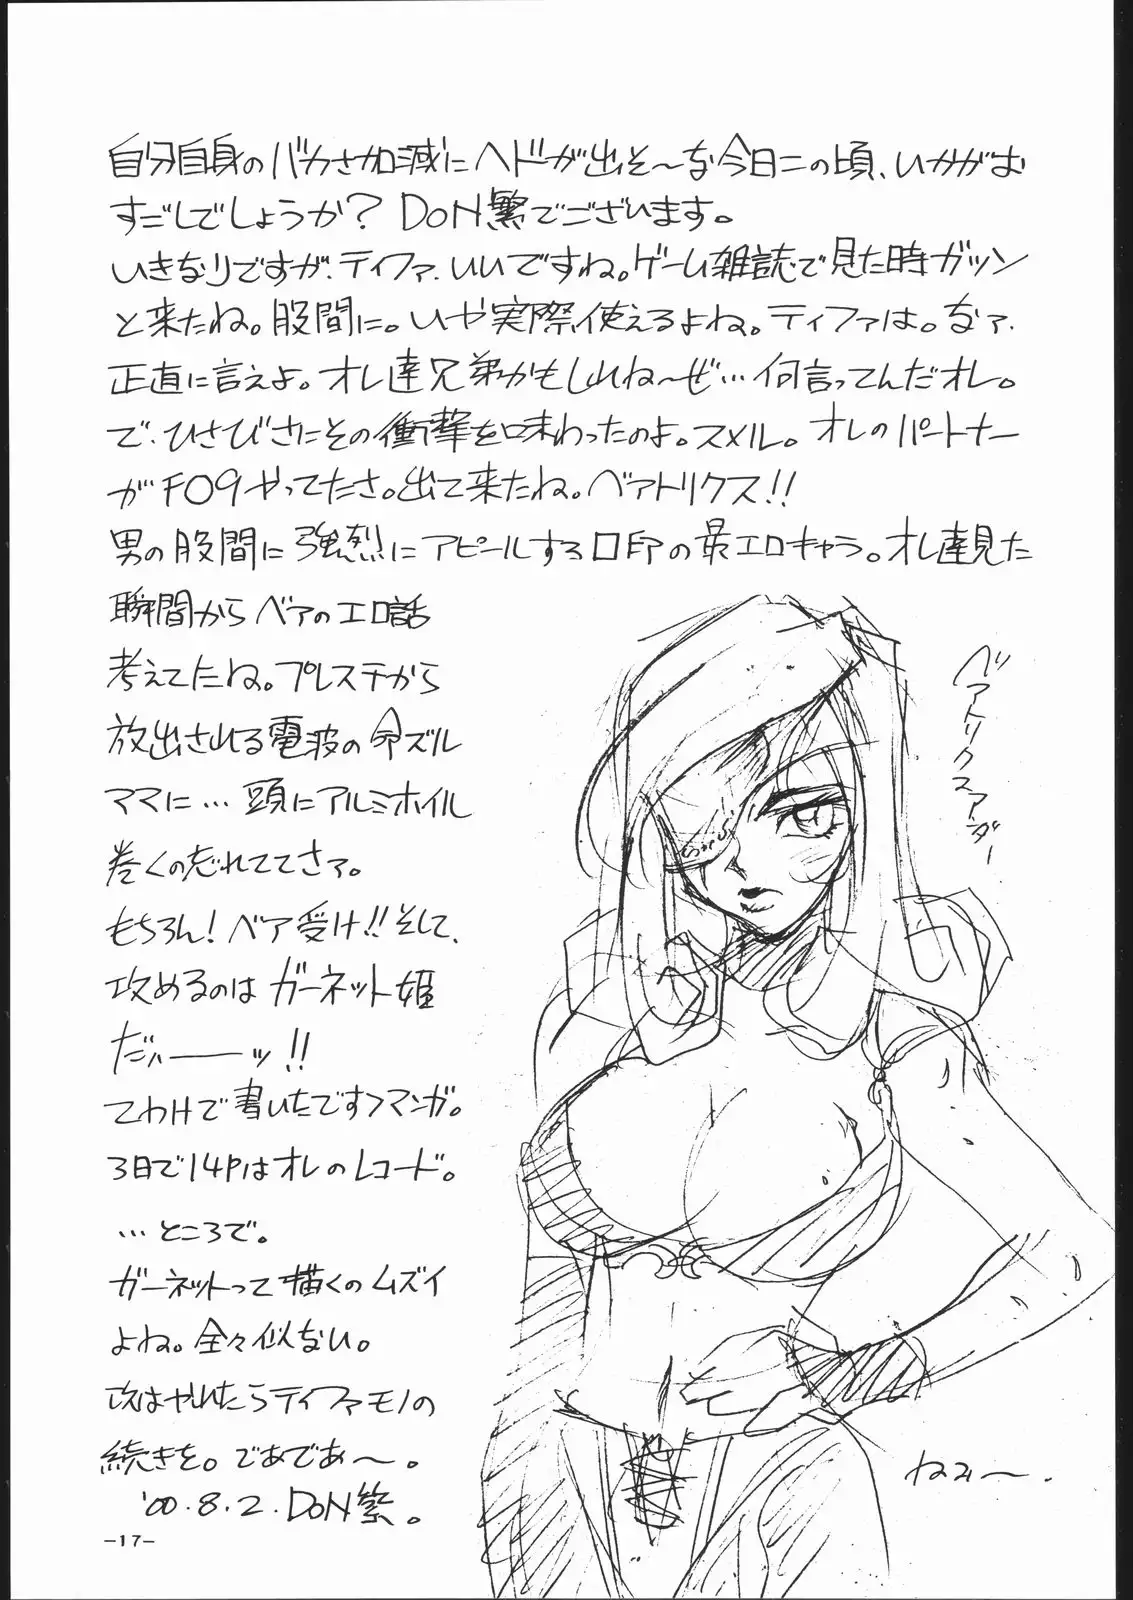 自分自身のバカさ加減にヘドが出そ〜な今日この頃、いかがお
すごしでしょうか？DoN繁でございます。
いきなりですが、ティファ、いいですね。ゲーム雑誌で見た時ガツン
と来たね。股間に。いや実際、使えるよね。ティファは。なァ、
正直に言えよ。オレ達兄弟かもしれね〜ぜ…何言ってんだオレ。
で、ひさびさにその衝撃を味わったのよ。スメル。オレのパートナー
がFO9やってたさ。出て来たね。ベアトリクス!!
男の股間に強烈にアピールする口印の最エロキャラ。オレ達見た
瞬間からベアのエロ話
考えてたね。プレステから
放出される電波の命ズル
ママに…頭にアルミホイル
巻くの忘れててさァ。
もちろん！ベア受け!!そして、
攻めるのはガーネット姫
だィーーッ!!
てわけで書いたですフマンガ。
3日で14Pはオレのレコード。
…ところで。
ガーネットって描くのムズイ
よね。全々似ない。
次はやれたらティファモノの
続きを。であであ〜。
'00.8.2.DoN繁。
-17-
ベアトリクスアンダー
ねみ〜.